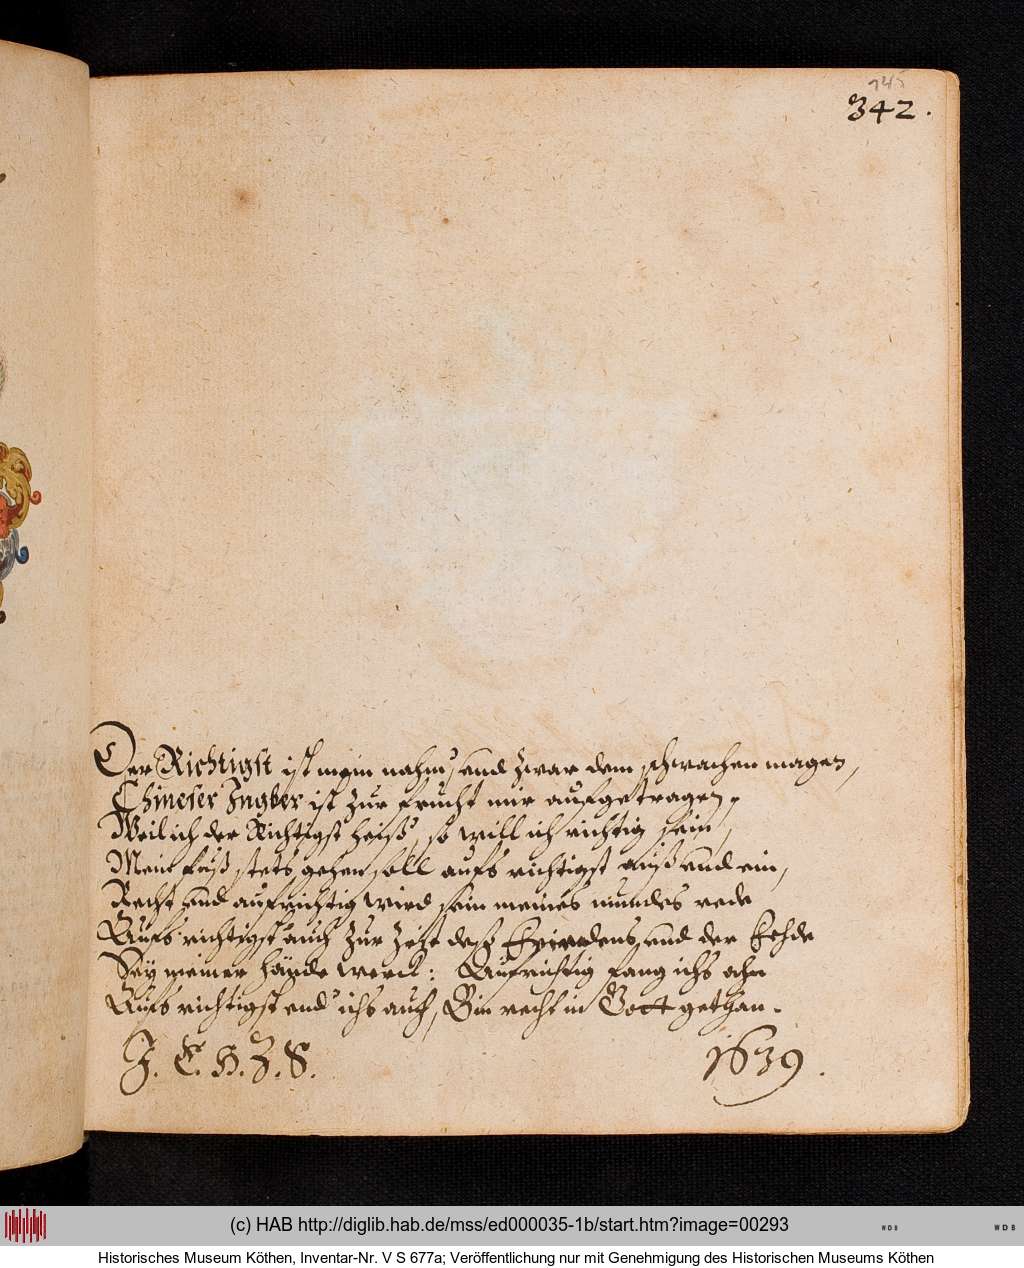 145
342.
Der Richtigst ist mein nahm, und zwar dem schwachen magen,
Chineser Ingber ist zur frucht mir aufgetragen,
Weil ich der Richtigst heiß, so will ich richtig sein,
Mein fuß stets gehen soll aufs richtigst auß und ein,
Recht und aufrichtig wird sein meines mundes rede
Aufs richtigst auch zur Zeit deß und der Fehde
Sey meiner hände werck: Aufrichtig fang ichs ahn
Aufs richtigst end ichs auch, Bin recht in Gott gethan.
J. E. H. Z. S. 1639.
(c) HAB http://diglib.hab.de/mss/ed000035-1b/start.htm?image=00293
WDB
WDB
Historisches Museum Köthen, Inventar-Nr. V S 677a; Veröffentlichung nur mit Genehmigung des Historischen Museums Köthen